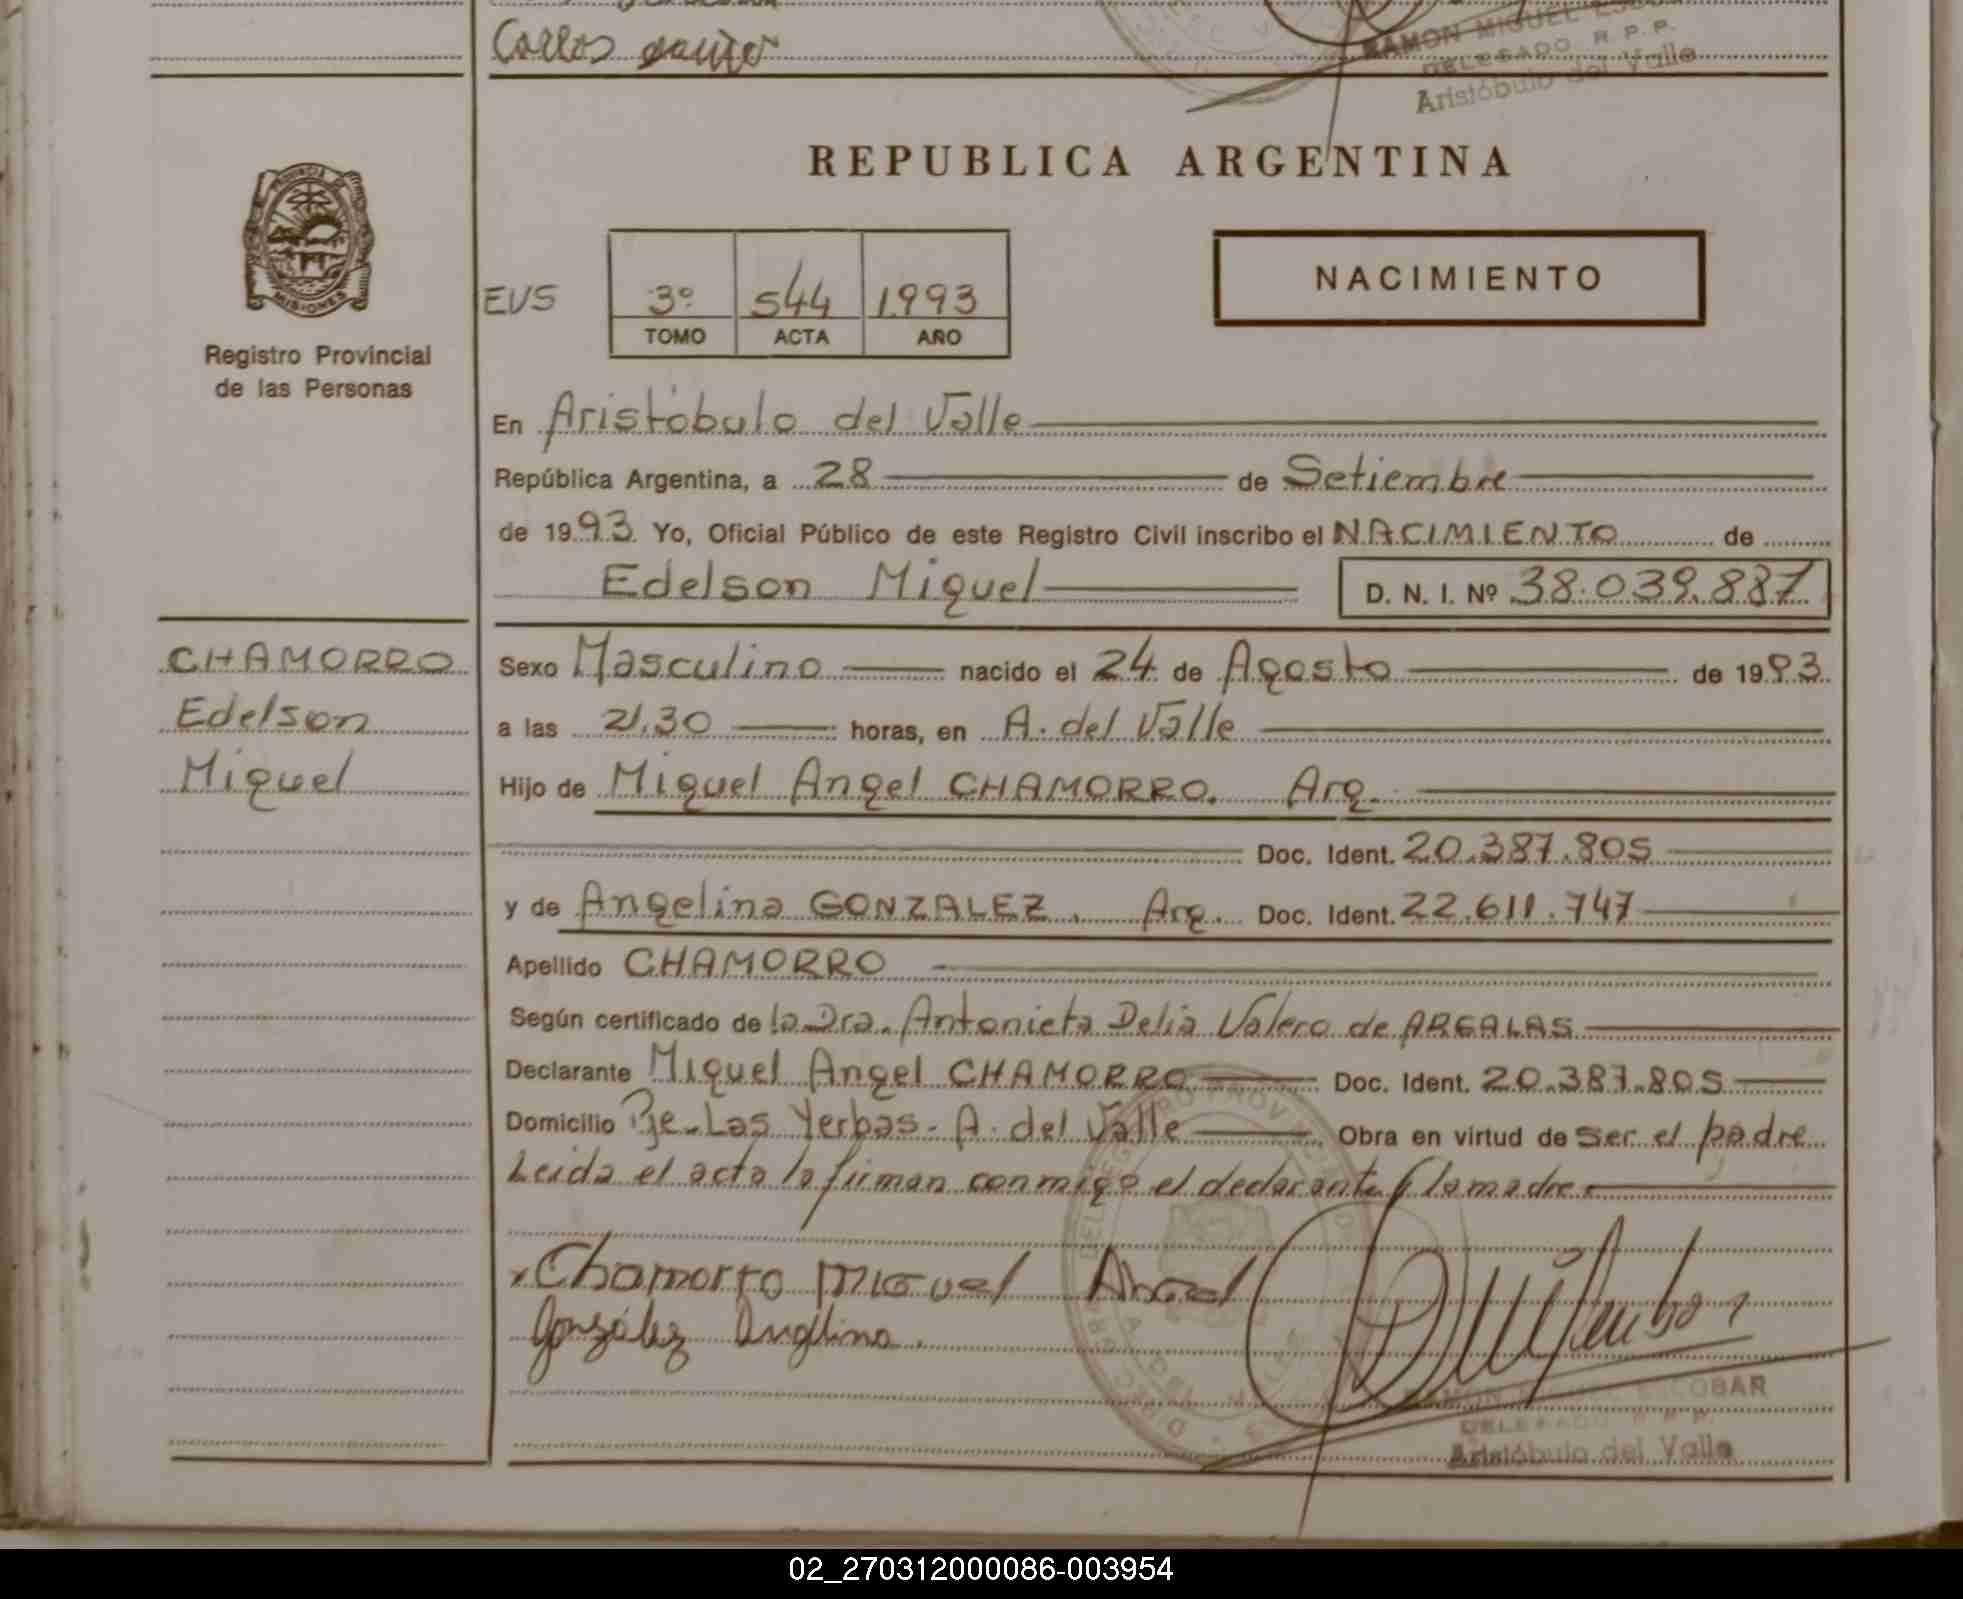 Carlos
RAMON MIGUEL
DELEGADO R. P. P.
Aristóbulo del Valle
REPUBLICA ARGENTINA
PROVINCIA DE
MISIONES
Registro Provincial
de las Personas
EVS
3º 544 1993
TOMO ACTA AÑO
NACIMIENTO
En Aristóbulo del Valle
República Argentina, a 28 de Setiembre
de 1993 Yo, Oficial Público de este Registro Civil inscribo el NACIMIENTO de
Edelson Miguel D. N. I. Nº 38.039.887
CHAMORRO
Edelson
Miguel
Sexo Masculino nacido el 24 de Agosto de 1993
a las 21,30 horas, en A. del Valle
Hijo de Miguel Angel CHAMORRO. Arg.
Doc. Ident. 20.387.805
y de Angelina GONZALEZ. Arg. Doc. Ident. 22.611.747
Apellido CHAMORRO
Según certificado de la Dra. Antonieta Delia Valero de ARGALAS
Declarante Miguel Angel CHAMORRO Doc. Ident. 20.387.805
Domicilio Pje. Las Yerbas - A. del Valle Obra en virtud de ser el padre
Leida el acta la firman conmigo el declarante y la madre.
Chamorro Miguel Angel
González Angelina.
RAMON MIGUEL ESCOBAR
DELEGADO R. P. P.
Aristóbulo del Valle
02_270312000086-003954